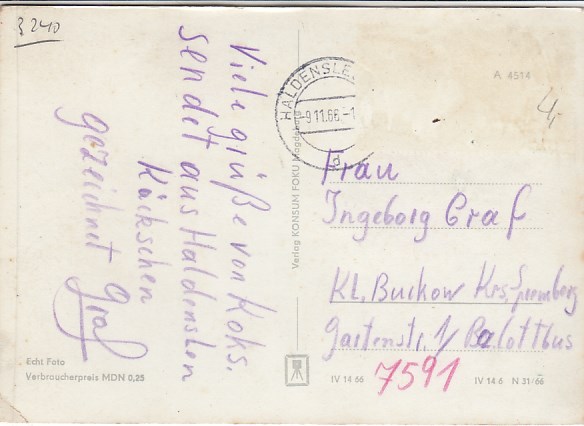 3240
Viele grüße von Koks.
sendet aus Haldensleben
Käkschen
gezeichnet Graf
HALDENSLE
-9.11.66.-1
d
A 4514
4
Verlag KONSUM FOKU Magdeburg
Frau
Ingeborg Graf
Kl. Buckow Krs. Spremberg
Gartenstr. 1/ Bz. Cottbus
7591
Echt Foto
Verbraucherpreis MDN 0,25
IV 14 66
IV 14 6 N 31/66